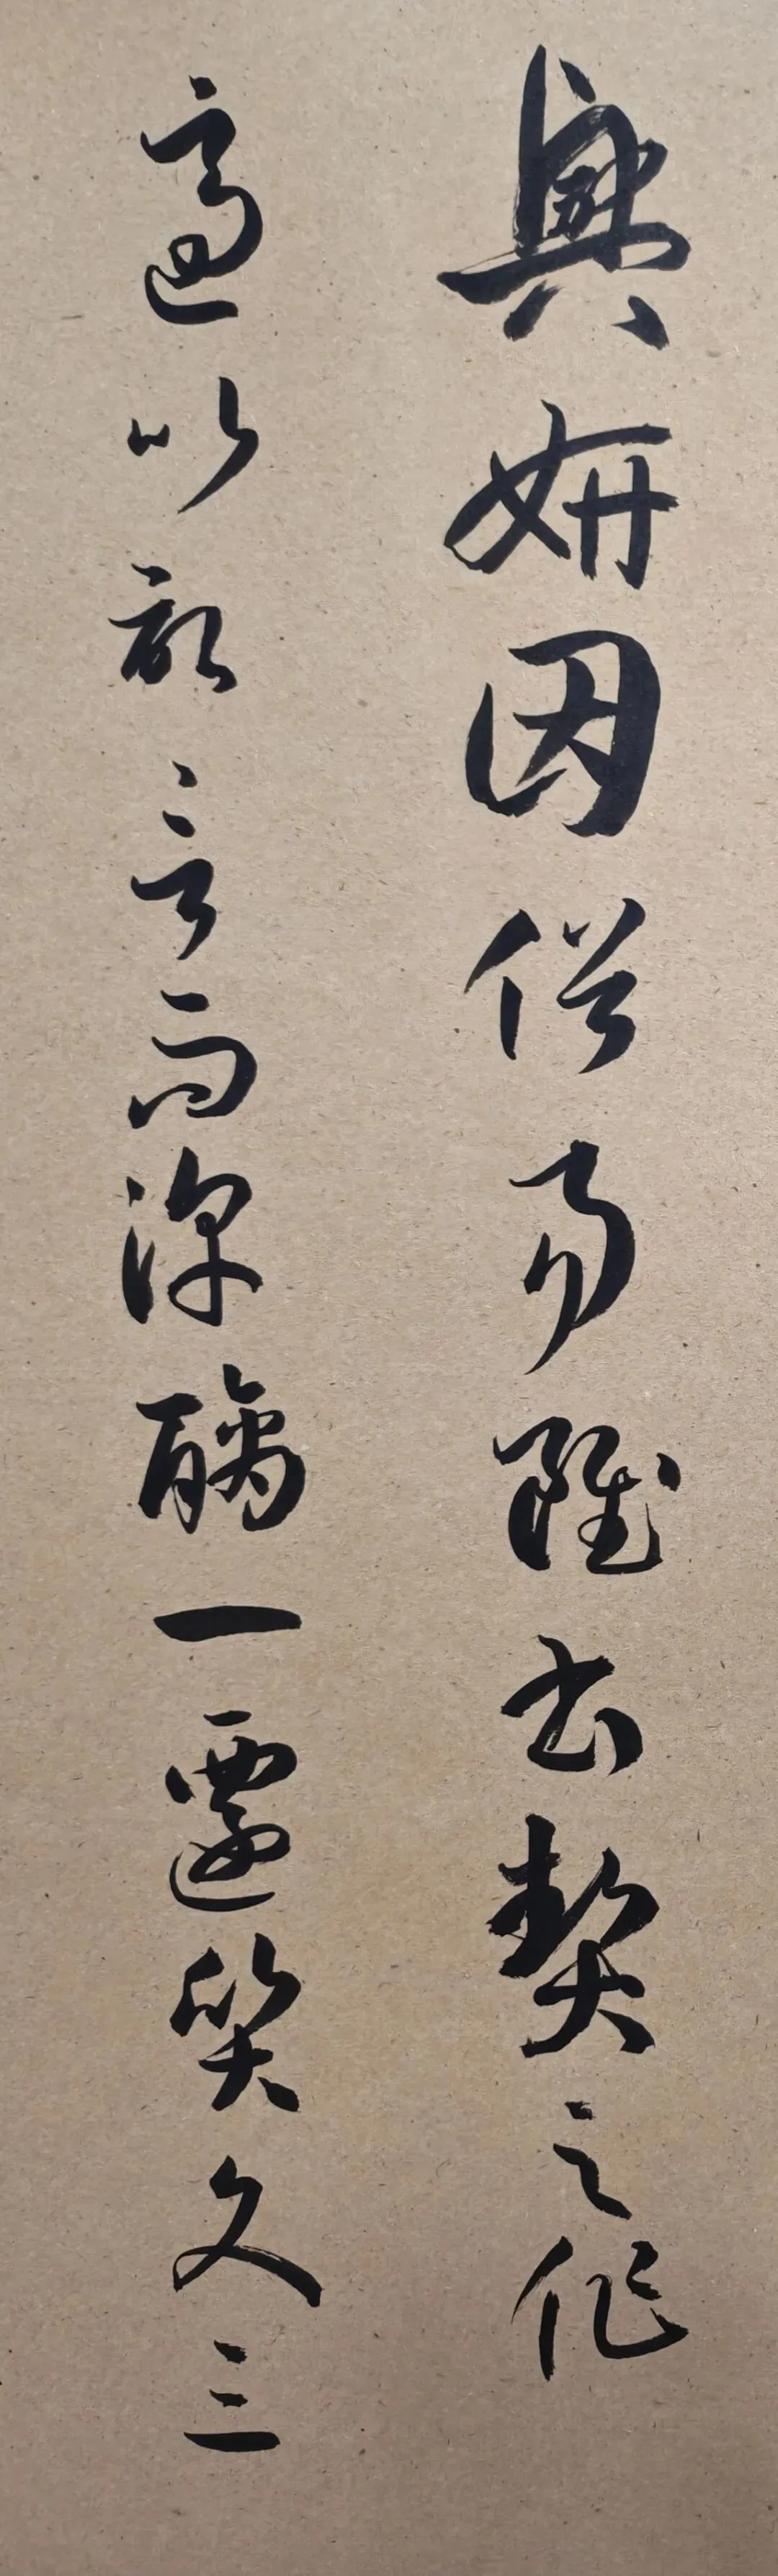 興妍因俗易雖書契之作
適以記言而淳醨一遷質文三